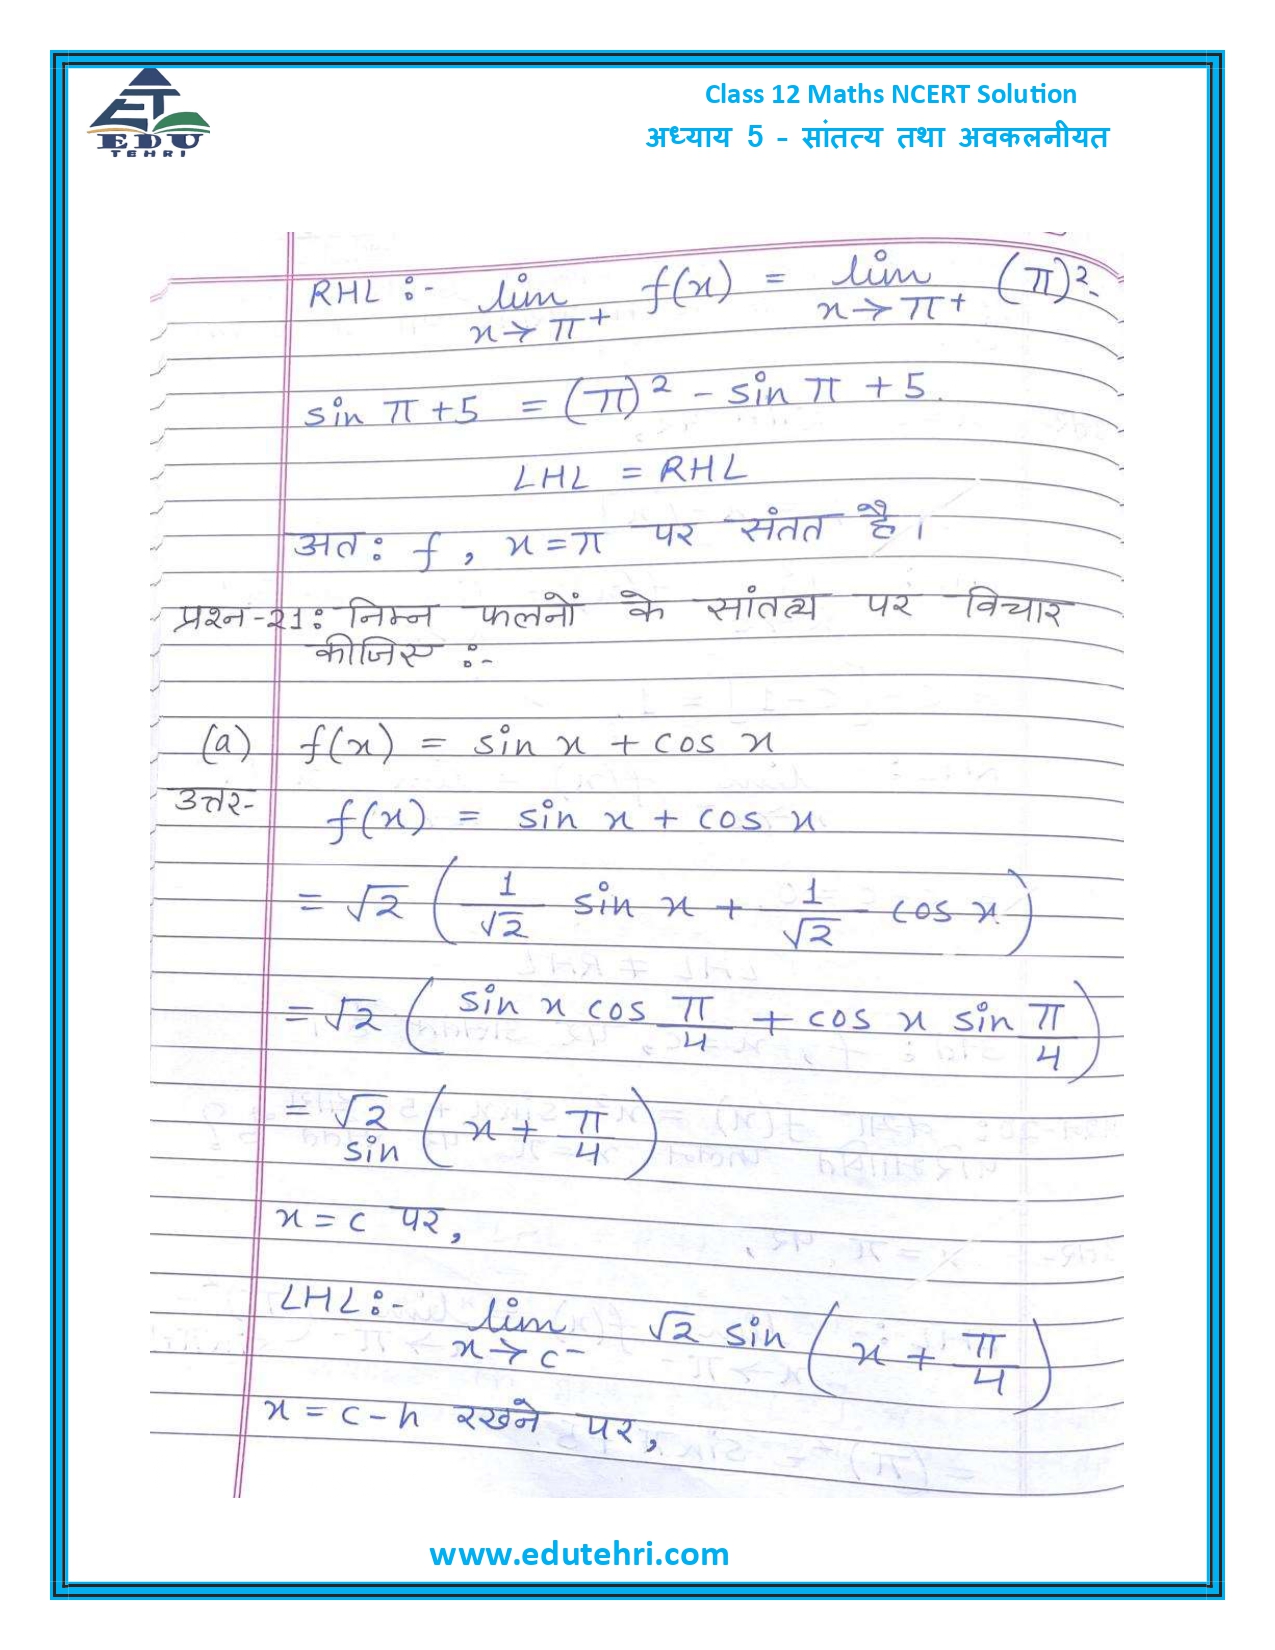 EDU
TEHRI
Class 12 Maths NCERT Solution
अध्याय 5 - सांतत्य तथा अवकलनीयत
RHL :- lim f(x) = lim (π)²-
x→π⁺ x→π⁺
sin π + 5 = (π)² - sin π + 5.
LHL = RHL
अतः f, x=π पर संतत है।
प्रश्न-21: निम्न फलनों के सांतत्य पर विचार
कीजिए :-
(a) f(x) = sin x + cos x
उत्तर- f(x) = sin x + cos x
= √2 (1/√2 sin x + 1/√2 cos x)
= √2 (sin x cos π/4 + cos x sin π/4)
= √2 sin (x + π/4)
x = c पर,
LHL:- lim √2 sin (x + π/4)
x→c⁻
x = c-h रखने पर,
www.edutehri.com